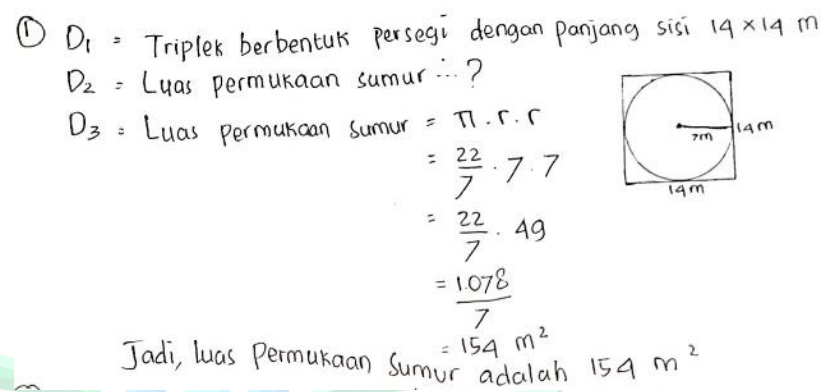 ① D₁ = Triplek berbentuk persegi dengan panjang sisi 14 × 14 m
D₂ = Luas permukaan sumur ...?
D₃ = Luas permukaan sumur = π . r . r
= 22/7 . 7 . 7
= 22/7 . 49
= 1.078/7
= 154 m²
Jadi, luas permukaan sumur adalah 154 m²
7m
14m
14m